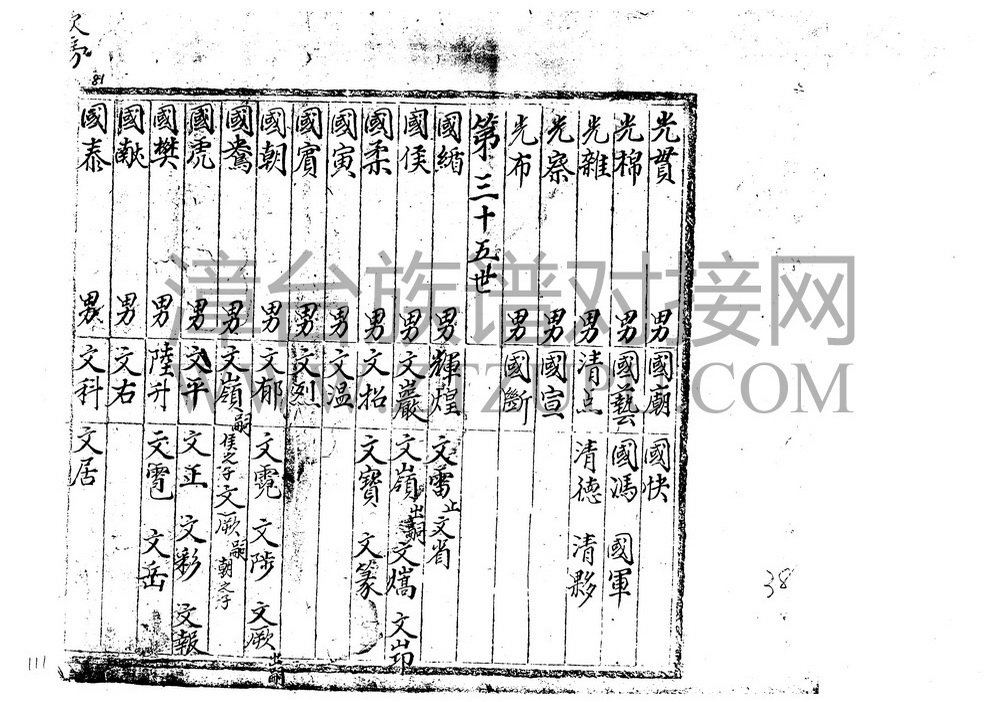 光貫 男 國廟 國快
光棉 男 國藝 國馮 國軍
光雜 男 清点 清德 清夥
光察 男 國宣
光布 男 國斷
第三十五世
國緒 男 輝煌 文雷 止 文省
國侯 男 文巖 文嶺 出嗣 文嵩 文
國柔 男 文招 文寶 文篆
國寅 男 文温
國賓 男 文烈
國朝 男 文郁 文霓 文陟 文厥 出嗣
國鴦 男 文嶺 嗣侯之子 文厥 嗣朝之子
國虎 男 文平 文正 文彩 文報
國樊 男 陸升 文雹 文岳
國献 男 文右
國泰 男 文科 文居
漳台族谱对接网
WWW.ZTZUPU.COM
81
38
111